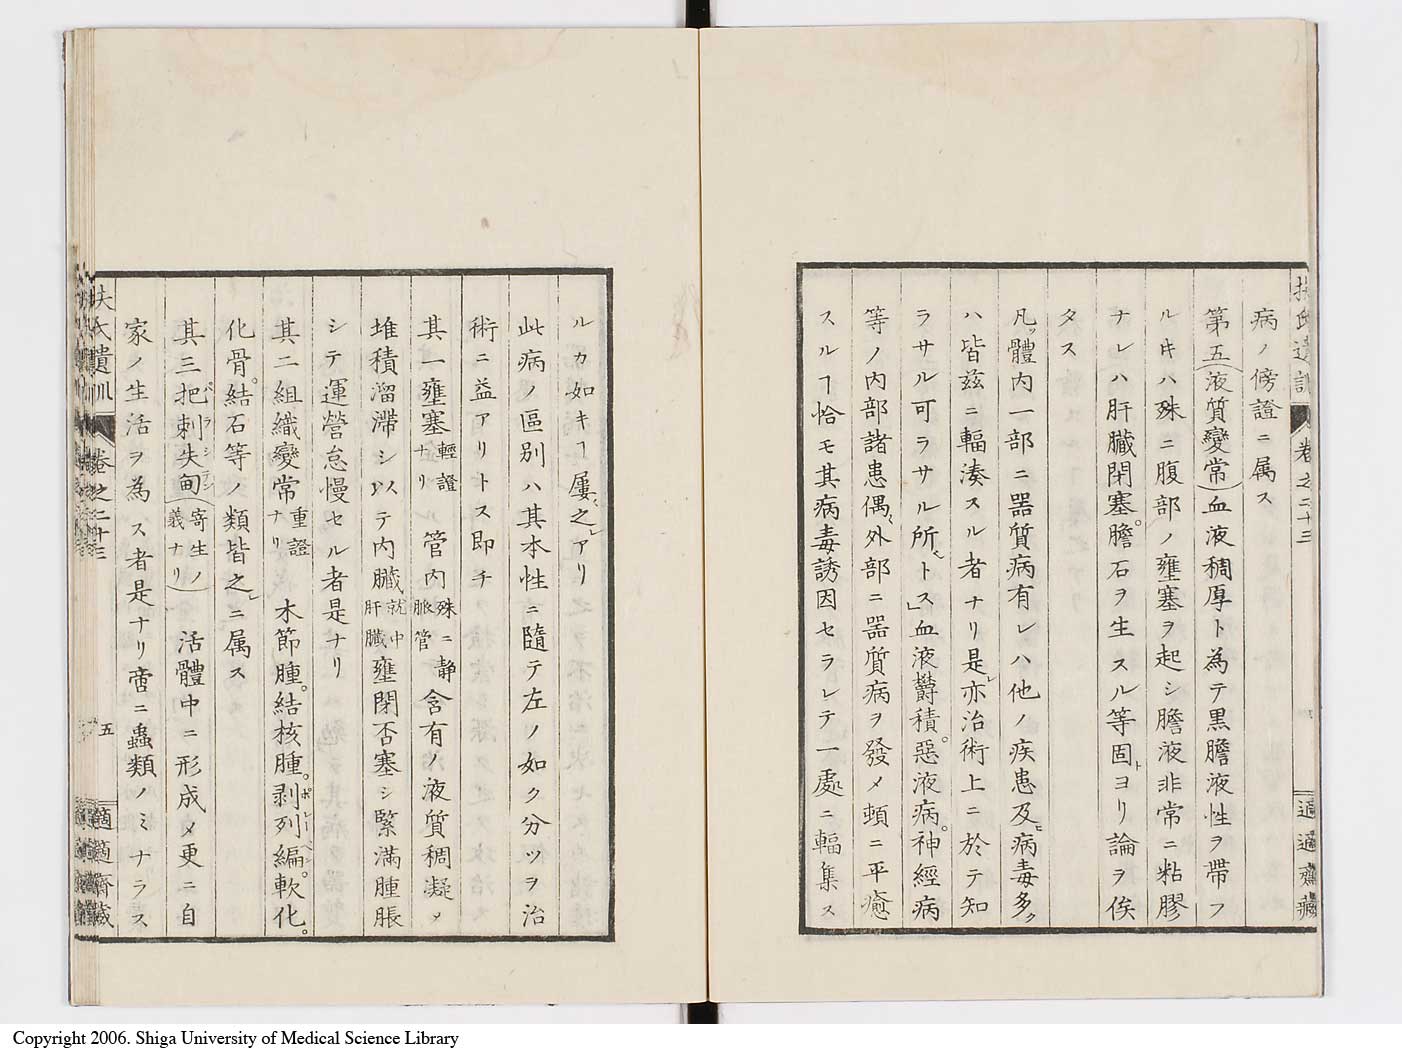 病ノ傍證ニ属ス
第五(液質變常)血液稠厚ト為テ黒膽液性ヲ帶フ
ルキハ殊ニ腹部ノ壅塞ヲ起シ膽液非常ニ粘膠
ナレハ肝臓閉塞。膽石ヲ生スル等固ヨリ論ヲ俟
タス
凡ソ體内一部ニ器質病有レハ他ノ疾患及ヒ病毒多ク
ハ皆茲ニ輻湊スル者ナリ是レ亦治術上ニ於テ知
ラサル可ラサル所トス」血液欝積。惡液病。神經病
等ノ内部諸患偶外部ニ器質病ヲ發メ頓ニ平癒
スルヿ恰モ其病毒誘因セラレテ一處ニ輻集ス
扶氏遺訓 卷之二十三
適適齋藏
ルカ如キヿ屢之レアリ
此病ノ區別ハ其本性ニ隨テ左ノ如ク分ツヲ治
術ニ益アリトス即チ
其一壅塞輕證ナリ 管内殊ニ静脈管含有ノ液質稠凝メ
堆積溜滞シ以テ内臓就中肝臓壅閉否塞シ緊満腫脹
シテ運營怠慢セル者是ナリ
其二組織變常重證ナリ 木節腫。結核腫。剥列編。軟化。
化骨。結石等ノ類皆之レニ属ス
其三把刺失甸(寄生ノ義ナリ)活體中ニ形成メ更ニ自
家ノ生活ヲ為ス者是ナリ啻ニ蟲類ノミナラス
扶氏遺訓 卷之二十三 五 適適齋藏
Copyright 2006. Shiga University of Medical Science Library